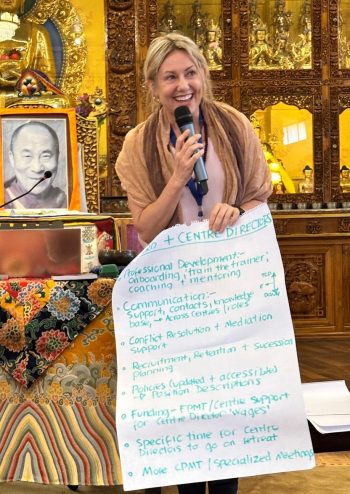 + CENTRE DIRECTORS
Professional Development:-
onboarding, 'train the trainer',
coaching + mentoring
• Communication:-
Support, contacts, knowledge
base, → Across Centres/roles
• Conflict Resolution + Mediation
support
• Recruitment, Retention + Sucession
Planning
• Policies (updated + accessible)
→ Position Descriptions
• Funding - FPMT/Centre Support
for Centre Director 'wages'
• Specific time for Centre
Directors to go on retreat
• More CPMT/specialized Meetings